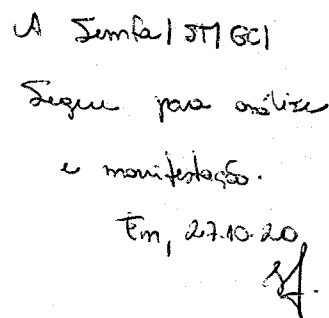 A Semfa/ST/GCI
Segue para análise
e manifestação.
Em, 27.10.20